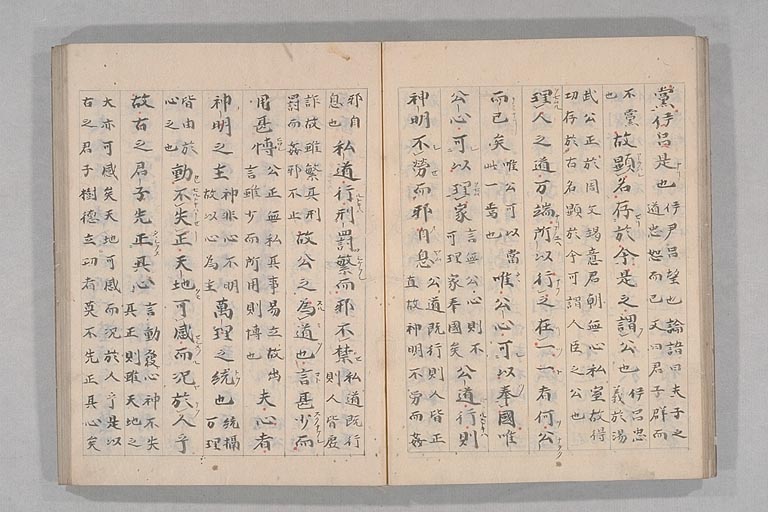 黨伊呂是也伊尹呂望也論語曰夫子之
道忠恕而已又曰君子群而
不黨
也
故顯名存於今是之謂公也伊呂忠
義於湯
武公正於周文竭意君朝無心私室故得
功存於古名顯於今可謂人臣之公也
理人之道万端所以行之在一一者何公
而已矣唯公可以當
此一焉也
唯公心可以奉國唯
公心可以理家言無公心則不
可理家奉國矣
公道行則
神明不勞而邪自息公道既行則人皆正
直故神明不勞而姦
邪自
息也
私道行刑罰繁而邪不禁私道既行
則人皆
詐故雖繁其刑
罰而姦邪不止
故公之為道也言甚少而
用甚博公正無私其事易立故出
言雖少而所用則博也
夫心者
神明之主神非心不明
故以心為主
萬理之統也統攝
万理
皆由於
心之也
動不失正天地可感而況於人乎
故古之君子先正其心言動發心神不失
其正則雖天地之
大亦可感矣天地可感而況於人乎是以
古之君子樹德立功者莫不先正其心矣